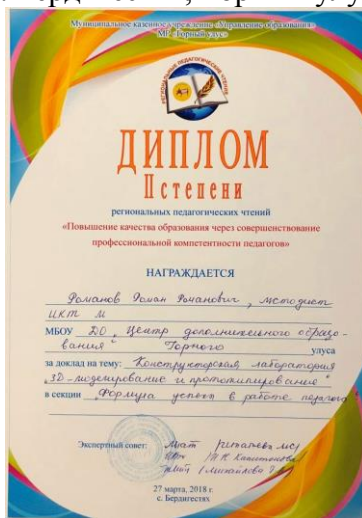 Муниципальное казенное учреждение «Управление образования»
МР «Горный улус»
РЕГИОНАЛЬНЫЕ ПЕДАГОГИЧЕСКИЕ ЧТЕНИЯ
ДИПЛОМ
II степени
региональных педагогических чтений
«Повышение качества образования через совершенствование
профессиональной компетентности педагогов»
НАГРАЖДАЕТСЯ
Романов Роман Романович, методист
ИКТ
МБОУ ДО „Центр дополнительного образо-
вания" Горного улуса
за доклад на тему: Конструкторская лаборатория
„3D-моделирование и прототипирование"
в секции „Формула успеха в работе педагога
Экспертный совет:
27 марта, 2018 г.
с. Бердигестях